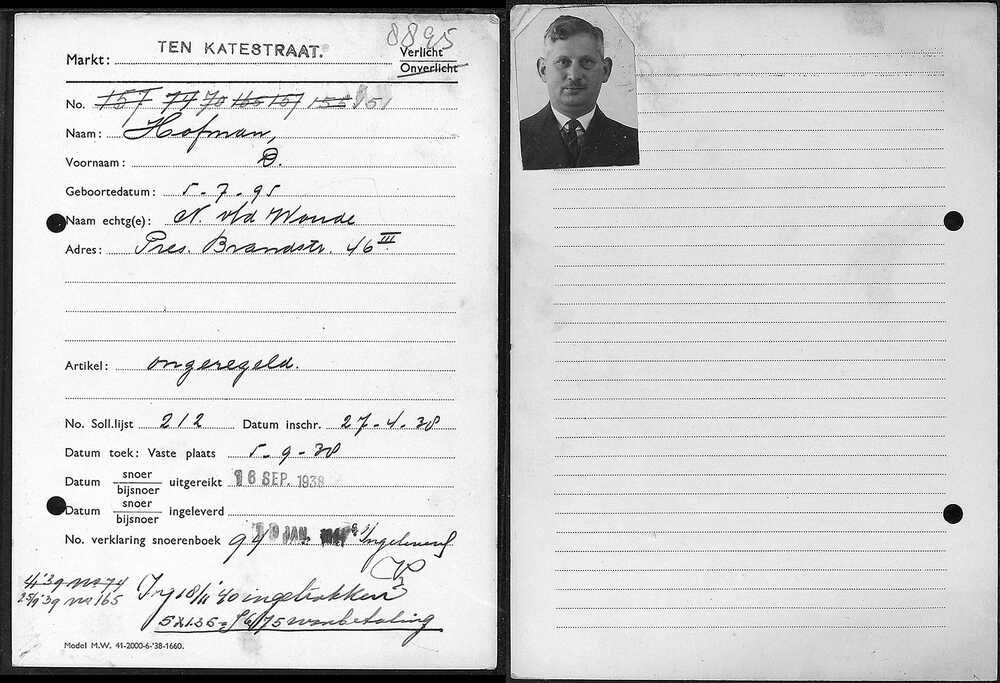 8895
Markt: TEN KATESTRAAT. Verlicht
Onverlicht
No. 157 74 70 165 157 155 151
Naam: Hofman,
Voornaam: D.
Geboortedatum: 5-7-95
Naam echtg(e): N. v/d Woude
Adres: Pres. Brandstr. 46 III
Artikel: ongeregeld.
No. Soll.lijst 212 Datum inschr. 27-4-38
Datum toek: Vaste plaats 5-9-38
Datum snoer bijsnoer uitgereikt 16 SEP. 1938
Datum snoer bijsnoer ingeleverd
No. verklaring snoerenboek 94 JAN. Ingeleverd
4/1'39 no 74
25/9'39 no 165
18/11 '40 ingetrokken
5 x 1.35 = f 6,75 wanbetaling
Model M.W. 41-2000-6-'38-1660.